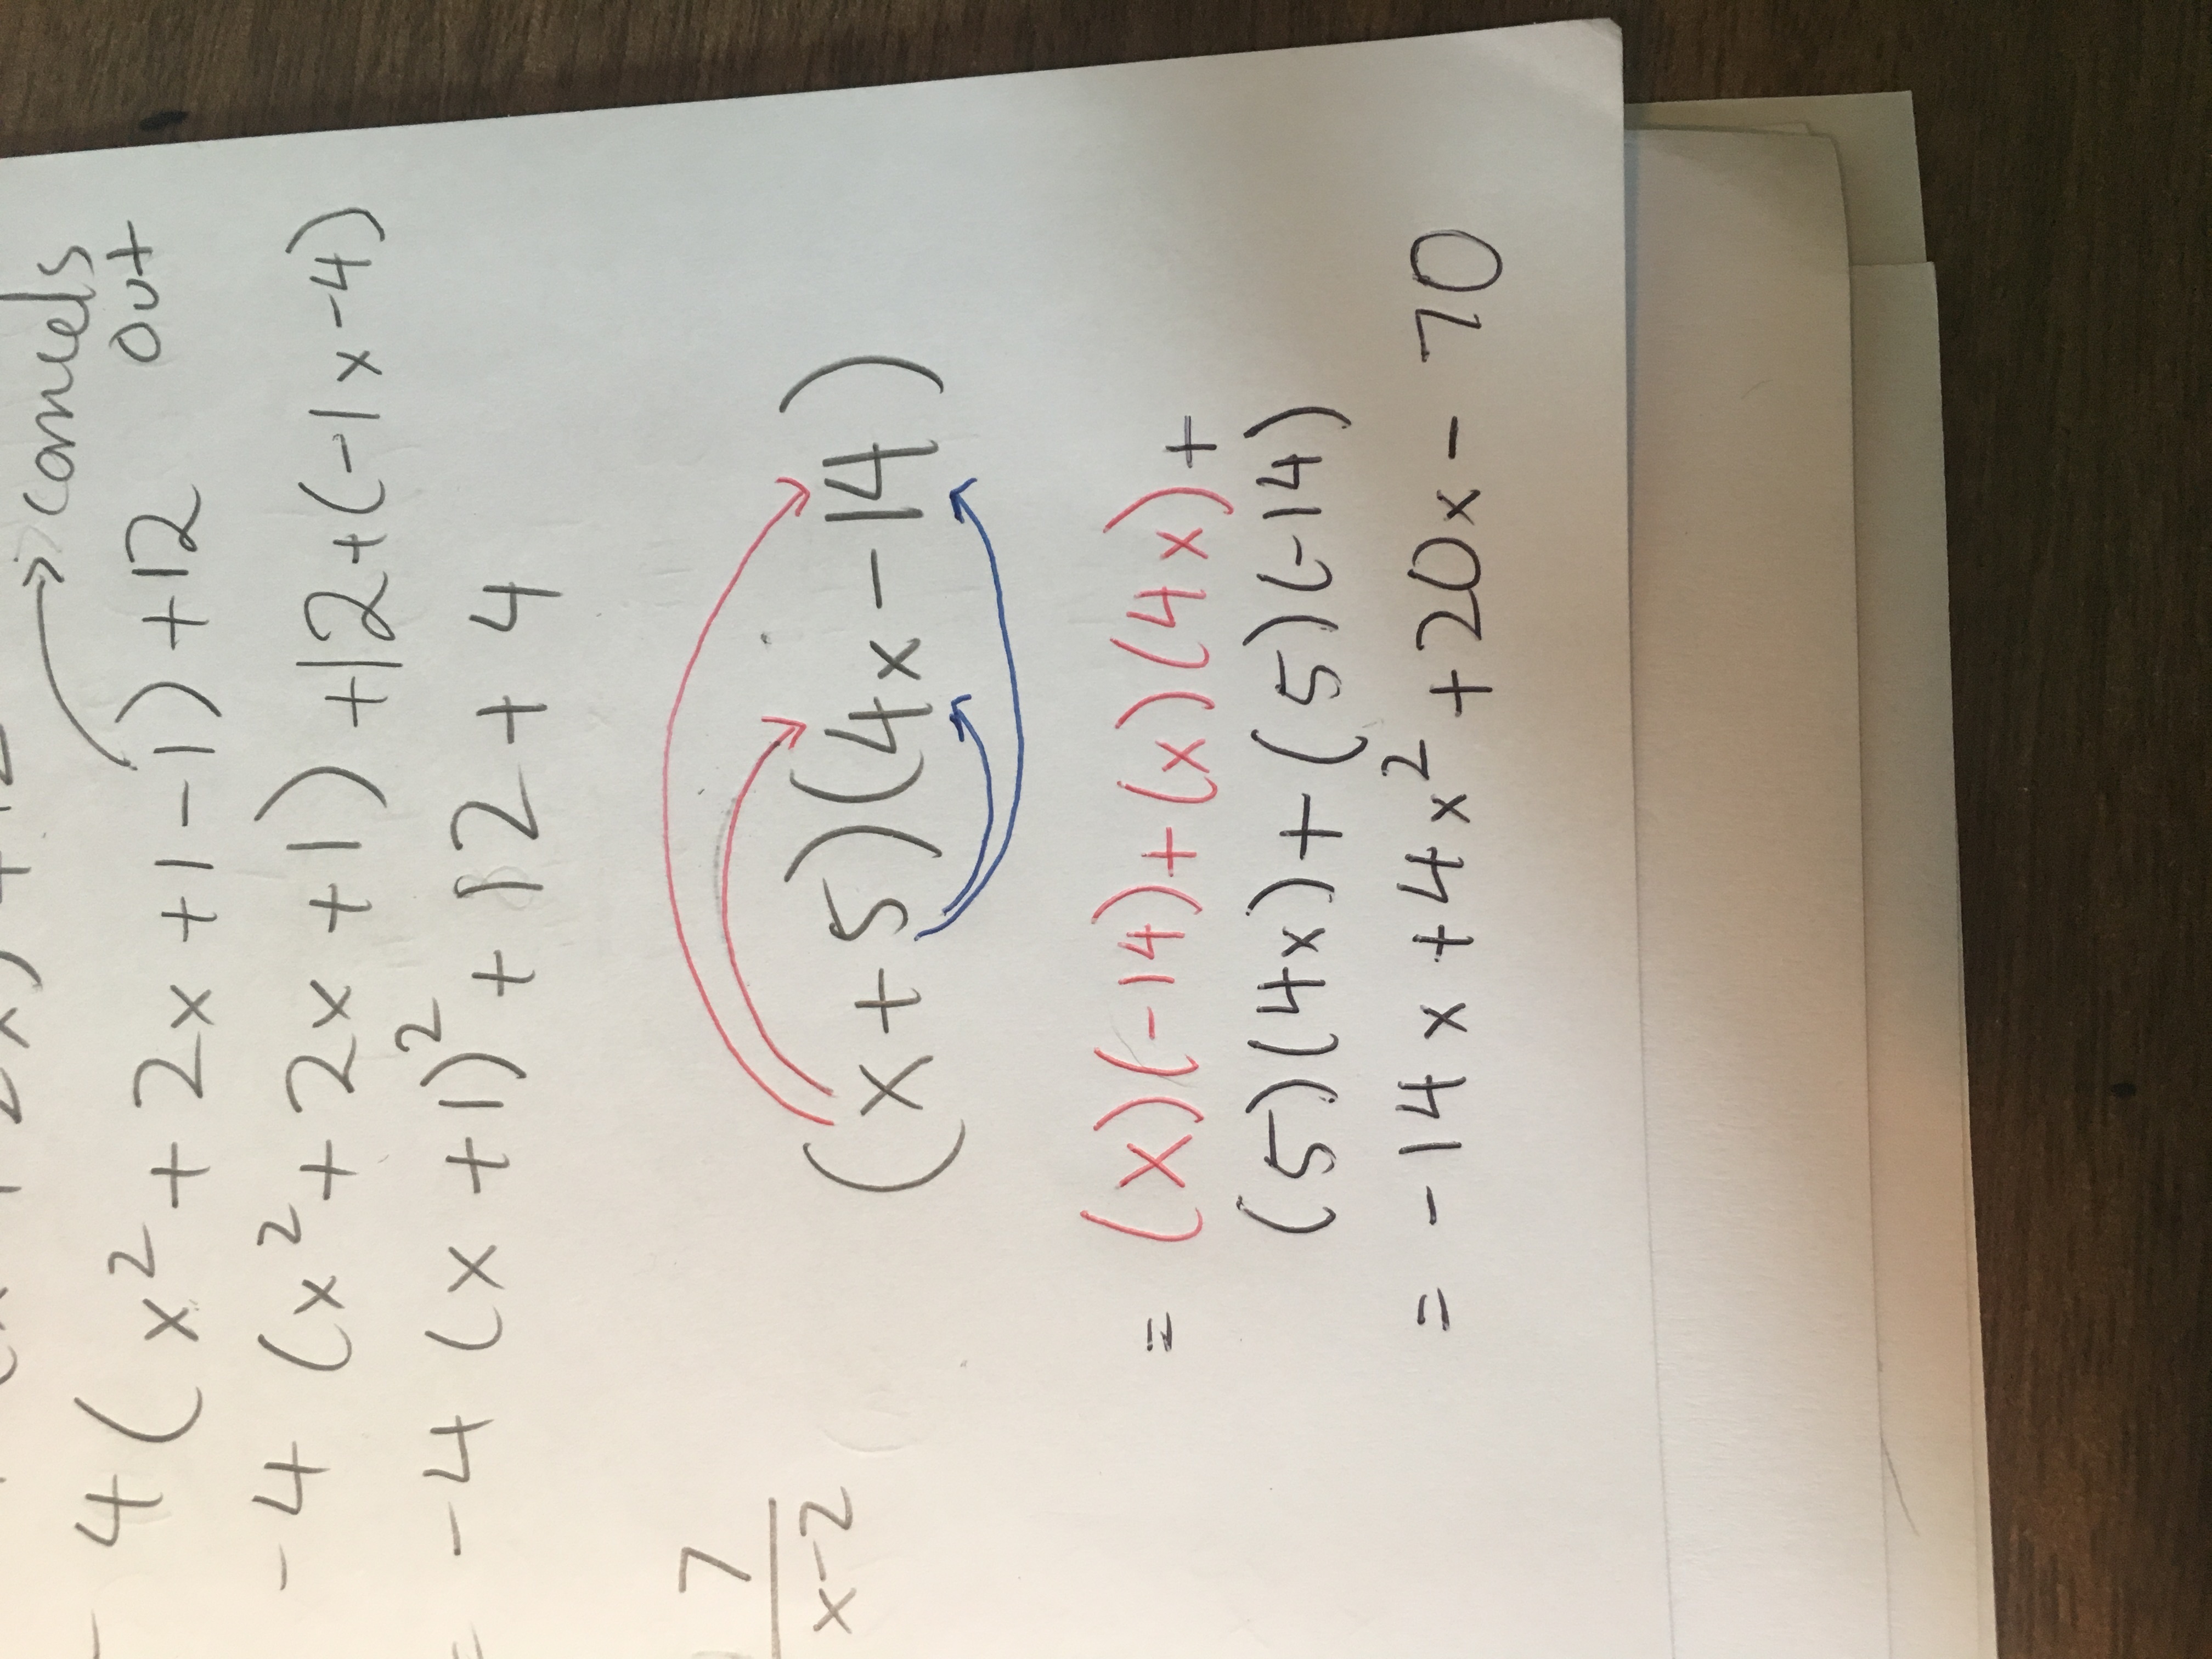 cancels
out
4(x² + 2x + 1 - 1) + 12
-4(x² + 2x + 1) + 12 + (-1x - 4)
= -4(x + 1)² + 12 + 4
7
x-2
(x + 5)(4x - 14)
= (x)(-14) + (x)(4x) +
(5)(4x) + (5)(-14)
= -14x + 4x² + 20x - 70